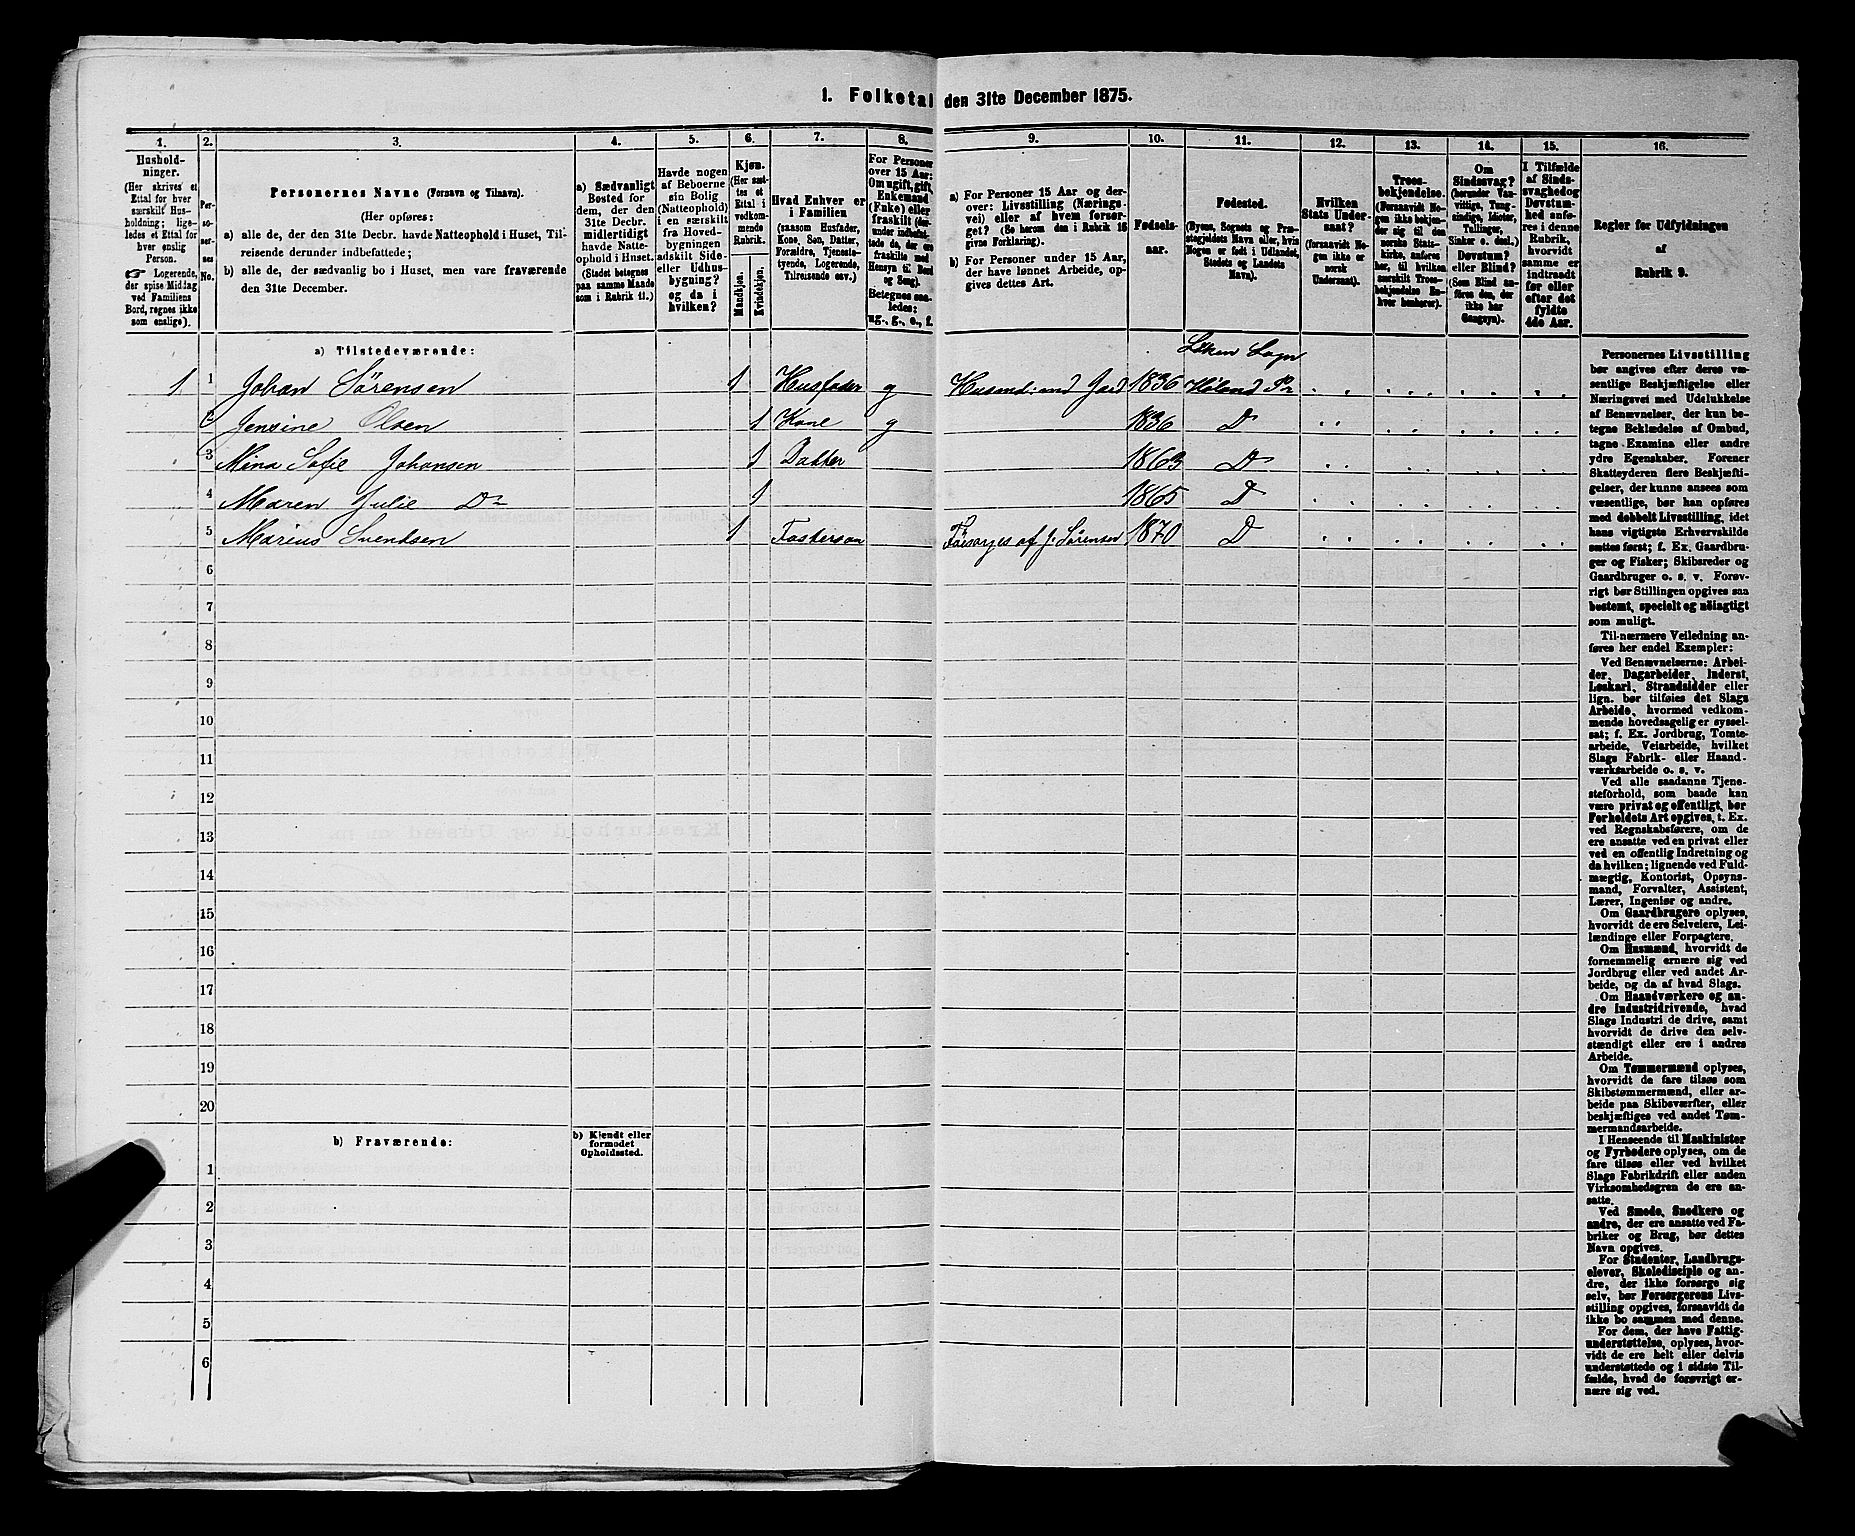 1. Folketal den 31te December 1875.
1. 2. 3. 4. 5. 6. 7. 8. 9. 10. 11. 12. 13. 14. 15. 16.
Hushold-
ninger.
(Her skrives et
Ettal for hver
særskilt Hus-
holdning; lige-
ledes et Ettal for
hver enslig
Person.
☞ Logerende,
der spise Middag
ved Familiens
Bord, regnes ikke
som enslige).
Per-
so-
ner-
nes
No.
Personernes Navne (Fornavn og Tilnavn).
(Her opføres:
a) alle de, der den 31te Decbr. havde Natteophold i Huset, Til-
reisende derunder indbefattede;
b) alle de, der sædvanlig bo i Huset, men vare fraværende
den 31te December.
a) Sædvanligt
Bosted for
dem, der den
31te Decbr.
midlertidigt
havde Natte-
ophold i Huset.
(Stedet betegnes
paa samme Maade
som i Rubrik 11.)
Havde nogen
af Beboerne
sin Bolig
(Natteophold)
i en særskilt
fra Hoved-
bygningen
adskilt Side-
eller Udhus-
bygning?
og da i
hvilken?
Kjøn.
(Her sæt-
tes et
Ettal i
vedkom-
mende
Rubrik.
Mandkjøn.
Kvindekjøn.
Hvad Enhver er
i Familien
(saasom Husfader,
Kone, Søn, Datter,
Forældre, Tjeneste-
tyende, Logerende,
Tilreisende osv.)
For Personer
over 15 Aar:
Om ugift, gift,
Enkemand
(Enke) eller
fraskilt (der-
under indbefat-
tede de, der ere
fraskilte med
Hensyn til Bord
og Seng).
Betegnes saa-
ledes:
ug., g., e., f.
a) For Personer 15 Aar og der-
over: Livsstilling (Nærings-
vei) eller af hvem forsør-
get? (Se herom den i Rubrik 16
givne Forklaring).
b) For Personer under 15 Aar,
der have lønnet Arbeide, op-
gives dettes Art.
Fødsels-
aar.
Fødested.
(Byens, Sognets og Præ-
stegjeldets Navn eller, hvis
Nogen er født i Udlandet,
Stedets og Landets
Navn).
Hvilken
Stats Under-
saat?
(forsaavidt No-
gen ikke er
norsk
Undersaat).
Troes-
bekjendelse.
(Forsaavidt No-
gen ikke bekjen-
der sig til den
norske Stats-
kirke, anføres
her, til hvilken
særskilt Troes-
bekjendelse En-
hver henhører).
Om
Sindssvag?
(herunder Van-
vittige, Tung-
sindige, Idioter,
Tullinger,
Sinker o. desl.)
Døvstum?
eller Blind?
(Som Blind an-
føres den, der
ikke har
Gangsyn).
I Tilfælde
af Sinds-
svaghed og
Døvstum-
hed anfø-
res i denne
Rubrik,
hvorvidt
samme er
indtraadt
før eller
efter det
fyldte
4de Aar.
Regler for Udfyldningen
af
Rubrik 9.
a) Tilstedeværende:
Löken Sogn
1 1 Johan Sörensen 1 Husfader g Husmd: med Jord 1836 Höland Pr
2 Jensine Olsen 1 Kone g 1836 D
3 Mina Sofie Johansen 1 Datter 1863 D
4 Maren Julie Do 1 1865 D
5 Marius Svendsen 1 Fosterson Forsorges af J. Sörensen 1870 D
6
7
8
9
10
11
12
13
14
15
16
17
18
19
20
b) Fraværende:
b) Kjendt eller
formodet
Opholdssted.
1
2
3
4
5
6
Personernes Livsstilling
bør angives efter deres væ-
sentlige Beskjæftigelse eller
Næringsvei med Udelukkelse
af Benævnelser, der kun be-
tegne Beklædelse af Ombud,
tagne Examina eller andre
ydre Egenskaber. Forener
Skatteyderen flere Beskjæfti-
gelser, der kunne ansees som
væsentlige, bør han opføres
med dobbelt Livsstilling, idet
hans vigtigste Erhvervskilde
sættes først; f. Ex. Gaardbru-
ger og Fisker; Skibsreder og
Gaardbruger o. s. v. Forøv-
rigt bør Stillingen opgives saa
bestemt, specielt og nøiagtigt
som muligt.
Til nærmere Veiledning an-
føres her endel Exempler:
Ved Benævnelserne: Arbei-
der, Dagarbeider, Inderst,
Løskarl, Strandsidder eller
lign. bør tilføies det Slags
Arbeide, hvormed vedkom-
mende hovedsagelig er syssel-
sat; f. Ex. Jordbrug, Tomte-
arbeide, Veiarbeide, hvilket
Slags Fabrik- eller Haand-
værksarbeide o. s. v.
Ved alle saadanne Tjene-
steforhold, som baade kan
være privat og offentligt, bør
Forholdets Art opgives, t. Ex.
ved Regnskabsførere, om de
ere ansatte ved en privat eller
ved en offentlig Indretning og
da hvilken; lignende ved Fuld-
mægtig, Kontorist, Opsyns-
mand, Forvalter, Assistent,
Lærer, Ingeniør og andre.
Om Gaardbrugere oplyses,
hvorvidt de ere Selveiere, Lei-
lændinge eller Forpagtere.
Om Husmænd, hvorvidt de
fornemmelig ernære sig ved
Jordbrug eller ved andet Ar-
beide, og da af hvad Slags.
Om Haandværkere og an-
dre Industridrivende, hvad
Slags Industri de drive, samt
hvorvidt de drive den selv-
stændigt eller ere i andres
Arbeide.
Om Tømmermænd oplyses,
hvorvidt de fare tilsøs som
Skibstømmermænd, eller ar-
beide paa Skibsværfter, eller
beskjæftiges ved andet Tøm-
mermandsarbeide.
I Henseende til Maskinister
og Fyrbødere oplyses, om de
fare tilsøs eller ved hvilket
Slags Fabrikdrift eller anden
Virksomhedsgren de ere an-
satte.
Ved Smede, Snedkere og
andre, der ere ansatte ved Fa-
briker og Brug, bør dettes
Navn opgives.
For Studenter, Landbrugs-
elever, Skoledisciple og an-
dre, der ikke forsørge sig
selv, bør Forsørgerens Livs-
stilling opgives, forsaavidt de
ikke bo sammen med denne.
For dem, der have Fattig-
understøttelse, oplyses, hvor-
vidt de ere helt eller delvis
understøttede og i sidste Til-
fælde, hvad de forøvrigt er-
nære sig ved.